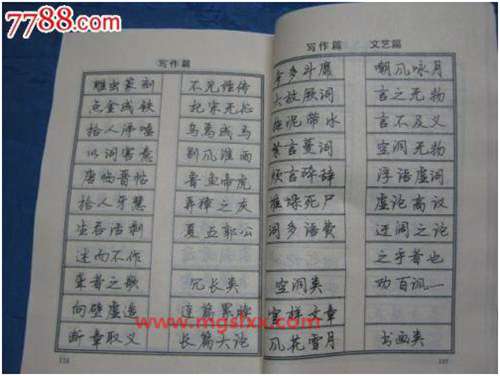 7788.com
写作篇
雕虫篆刻
点金成铁
拾人涕唾
以词害意
唐临晋帖
拾人牙慧
生吞活剥
述而不作
聋者之歌
向壁虚造
断章取义
不见经传
杞宋无征
乌焉成马
别风淮雨
鲁鱼帝虎
夏五郭公
冗长类
连篇累牍
长篇大论
写作篇 文艺篇
夸多斗靡
大放厥词
拖泥带水
繁言蔓词
烦言碎辞
堆垛死尸
词多语费
空洞类
官样文章
风花雪月
嘲风咏月
言之无物
言不及义
空洞无物
浮语虚词
虚论高议
迂阔之论
之乎者也
劝百讽一
书画类